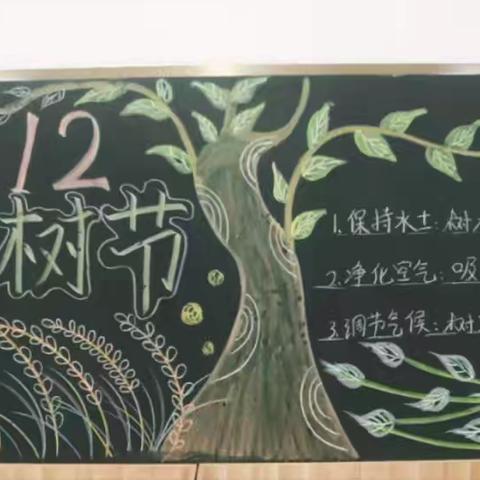 12
树节
1.保持水土:树
2.净化空气:吸
3.调节气候:树